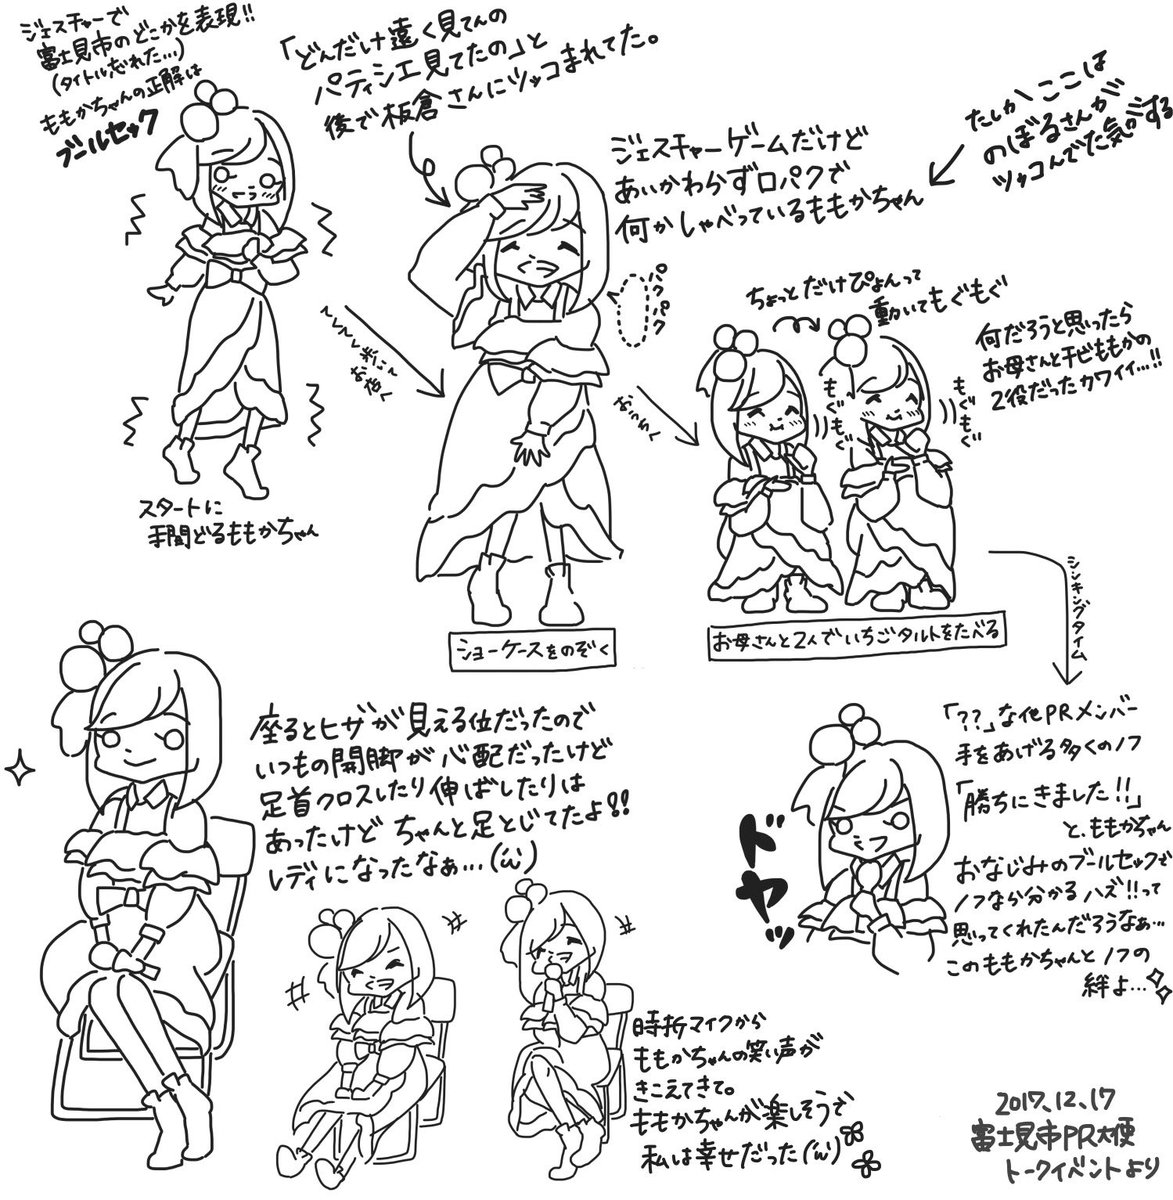 ジェスチャーで
富士見市のどこかを表現!!
(タイトル忘れた…)
ももかちゃんの正解は
ブールセック
「どんだけ遠く見てんの
パティシエ見てたの」と
後で板倉さんにツッコまれてた。
ジェスチャーゲームだけど
あいかわらず口パクで
何かしゃべっているももかちゃん
たしか ここは
のぼるさんが
ツッコんでた気がする
パクパク
スタートに
手間どるももかちゃん
てくてく歩いて
お店へ
ショーケースをのぞく
おうちへ
ちょっとだけぴょんって
動いてもぐもぐ
もぐもぐ
もぐもぐ
何だろうと思ったら
お母さんとチビももかの
2役だったカワイイ…!!
お母さんと2人でいちごタルトをたべる
シンキングタイム
「??」な他PRメンバー
手をあげる多くのノフ
「勝ちにきました!!」
と、ももかちゃん
おなじみのブールセックで
ノフなら分かるハズ!!って
思ってくれたんだろうなぁ…
このももかちゃんとノフの
絆よ…
ドヤッ
座るとヒザが見える位だったので
いつもの開脚が心配だったけど
足首クロスしたり伸ばしたりは
あったけど ちゃんと足とじてたよ!!
レディになったなぁ…('ω')
時折マイクから
ももかちゃんの笑い声が
きこえてきて。
ももかちゃんが楽しそうで
私は幸せだった('ω')
2017.12.17
富士見市PR大使
トークイベントより